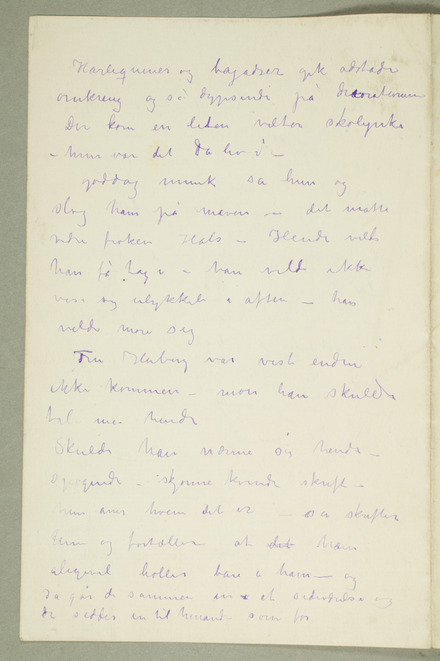 Harlequiner og bagadser gik adstadi
omkring og så dypsindi på dekorationen
Der kom en liden vilter skolepike
– hun var det Da liv i –
goddag munk sa hun og
slog ham på maven – det måtte
være frøken Hals – Hende vilde
han få tag i – han vilde ikke
være og ulykkeli i aften – han
vilde more sag
Fru Heiberg var visst endnu
ikke kommen – mon han skulde
tal med hende
Skulde han nærme sig hende –
skjønne kvinde skrift –
hun aner hvem det er – så skrifter
hun og fortæller at det han
aligevel holler bare a ham – og
Da går de sammen in i et sideværelse og
de sedder in til hinande som før